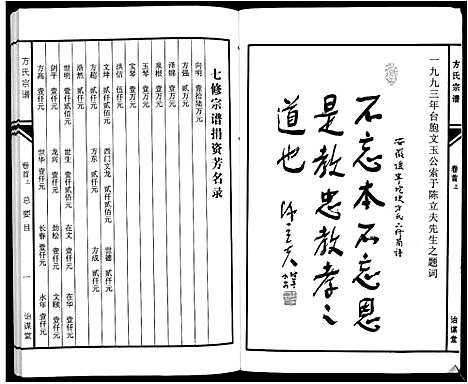 方氏宗谱
卷首上
治谋堂
一九九三年台胞文玉公索于陈立夫先生之题词
不忘本不忘恩
是教忠教孝之
道也
陈立夫
七修宗谱捐资芳名录
向明 壹拾陆万元
方强 贰万元
泽锦 壹万元
泉根 壹万元
玉琴 壹万元
宝琴 壹万元
洪信 伍仟元
文坤 贰仟贰佰元 西门文龙 贰仟元 世德 贰仟元
方超 贰仟元 方东 贰仟元 方成 贰仟元
浩然 贰仟元
世明 壹仟贰佰元 世生 壹仟贰佰元 在文 壹仟元 在华 壹仟元
剑平 壹仟元 龙兴 壹仟元 劲松 壹仟元 文颐 壹仟元
方高 壹仟元 世华 壹仟元 长春 壹仟元 永年 壹仟元
方氏宗谱
卷首上 总要目
一
治谋堂